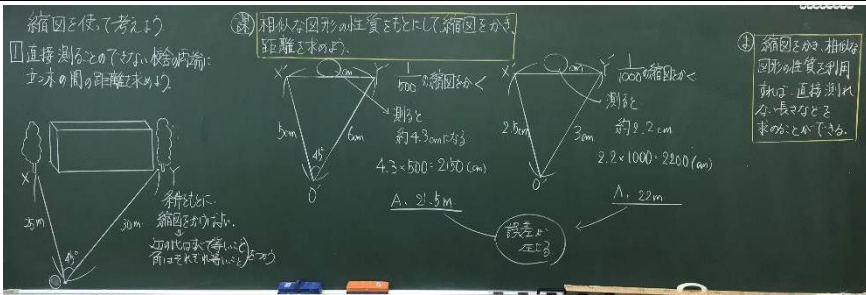 縮図を使って考えよう
1 直接測ることのできない校舎の両端に
立つ木の間の距離を求めよう
X
Y
25m
30m
45°
条件をもとに
縮図をかけばよい
辺の比はすべて等しいこと
角はそれぞれ等しいこと
課 相似な図形の性質をもとにして縮図をかき、
距離を求めよう。
X'
Y'
cm
1/500の縮図をかく
5cm
6cm
45°
O'
測ると
約4.3cmになる
4.3×500=2150(cm)
A. 21.5m
X'
Y'
cm
1/1000の縮図をかく
2.5cm
3cm
O'
測ると
約2.2cm
2.2×1000=2200(cm)
A. 22m
誤差が
生じる
ま 縮図をかき、相似な
図形の性質を利用
すれば、直接測れ
ない長さなどを
求めることができる。